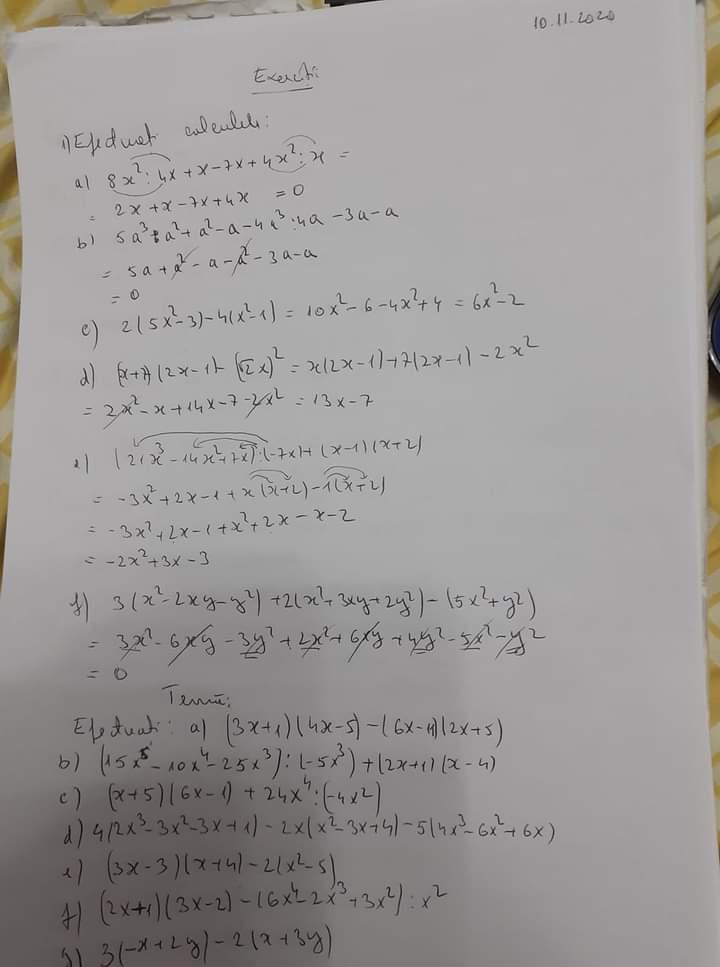 10.11.2020
Exerciții
1) Efectuați calculele:
a) 8x²:4x+x-7x+4x²:x =
= 2x+x-7x+4x = 0
b) 5a³:a²+a²-a-4a³:4a-3a-a
= 5a+a²-a-a²-3a-a
= 0
c) 2(5x²-3)-4(x²-1) = 10x²-6-4x²+4 = 6x²-2
d) (x+7)(2x-1)-(√2x)² = x(2x-1)+7(2x-1)-2x²
= 2x²-x+14x-7-2x² = 13x-7
e) (21x³-14x²+7x):(-7x)+(x-1)(x+2)
= -3x²+2x-1+x(x+2)-1(x+2)
= -3x²+2x-1+x²+2x-x-2
= -2x²+3x-3
f) 3(x²-2xy-y²)+2(x²+3xy+2y²)-(5x²+y²)
= 3x²-6xy-3y²+2x²+6xy+4y²-5x²-y²
= 0
Temă:
Efectuați: a) (3x+1)(4x-5)-(6x-11)(2x+5)
b) (15x⁵-10x⁴-25x³):(-5x³)+(2x+1)(x-4)
c) (x+5)(6x-1)+24x⁴:(-4x²)
d) 4(2x³-3x²-3x+1)-2x(x²-3x+4)-5(4x³-6x²+6x)
e) (3x-3)(x+4)-2(x²-5)
f) (2x+1)(3x-2)-(6x⁴-2x³+3x²):x²
g) 3(-x+2y)-2(x+3y)